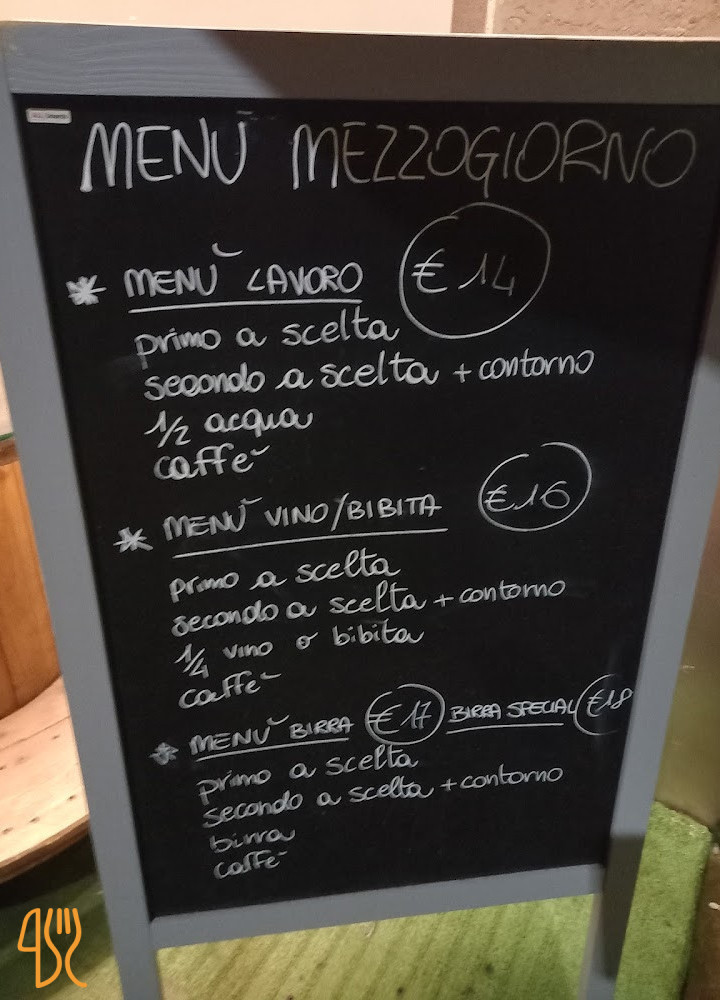 MENÙ MEZZOGIORNO
* MENÙ LAVORO € 14
primo a scelta
secondo a scelta + contorno
1/2 acqua
caffè
* MENÙ VINO/BIBITA € 16
primo a scelta
secondo a scelta + contorno
1/4 vino o bibita
caffè
* MENÙ BIRRA € 17 BIRRA SPECIAL € 18
primo a scelta
secondo a scelta + contorno
birra
caffè